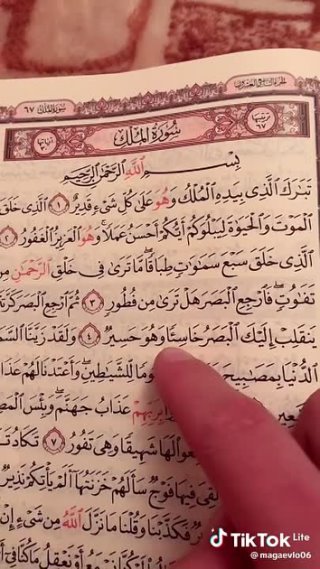 سُورَةُ المُلْكِ ٦٧
سُورَةُ المُلْكِ
بِسْمِ اللَّهِ الرَّحْمَٰنِ الرَّحِيمِ
تَبَارَكَ الَّذِي بِيَدِهِ الْمُلْكُ وَهُوَ عَلَىٰ كُلِّ شَيْءٍ قَدِيرٌ ١ الَّذِي خَلَقَ
الْمَوْتَ وَالْحَيَوٰةَ لِيَبْلُوَكُمْ أَيُّكُمْ أَحْسَنُ عَمَلًا وَهُوَ الْعَزِيزُ الْغَفُورُ ٢
الَّذِي خَلَقَ سَبْعَ سَمَٰوَاتٍ طِبَاقًا مَا تَرَىٰ فِي خَلْقِ الرَّحْمَٰنِ مِن
تَفَٰوُتٍ فَارْجِعِ الْبَصَرَ هَلْ تَرَىٰ مِن فُطُورٍ ٣ ثُمَّ ارْجِعِ الْبَصَرَ كَرَّ
يَنقَلِبْ إِلَيْكَ الْبَصَرُ خَاسِئًا وَهُوَ حَسِيرٌ ٤ وَلَقَدْ زَيَّنَّا السَّمَ
الدُّنْيَا بِمَصَٰبِيحَ وَمَا لِلشَّيَٰطِينِ وَأَعْتَدْنَا لَهُمْ عَذَا
بِرَبِّهِمْ عَذَابُ جَهَنَّمَ وَبِئْسَ الْمَصِ
سَمِعُوا لَهَا شَهِيقًا وَهِيَ تَفُورُ ٧ تَكَادُ تَ
فِيهَا فَوْجٌ سَأَلَهُمْ خَزَنَتُهَا أَلَمْ يَأْتِكُمْ نَذِيرٌ
فَكَذَّبْنَا وَقُلْنَا مَا نَزَّلَ اللَّهُ مِن شَيْءٍ إِنْ
نَسْمَعُ أَوْ نَعْقِلُ مَا كُنَّا فِي أَ
TikTok Lite
@magaevlo06